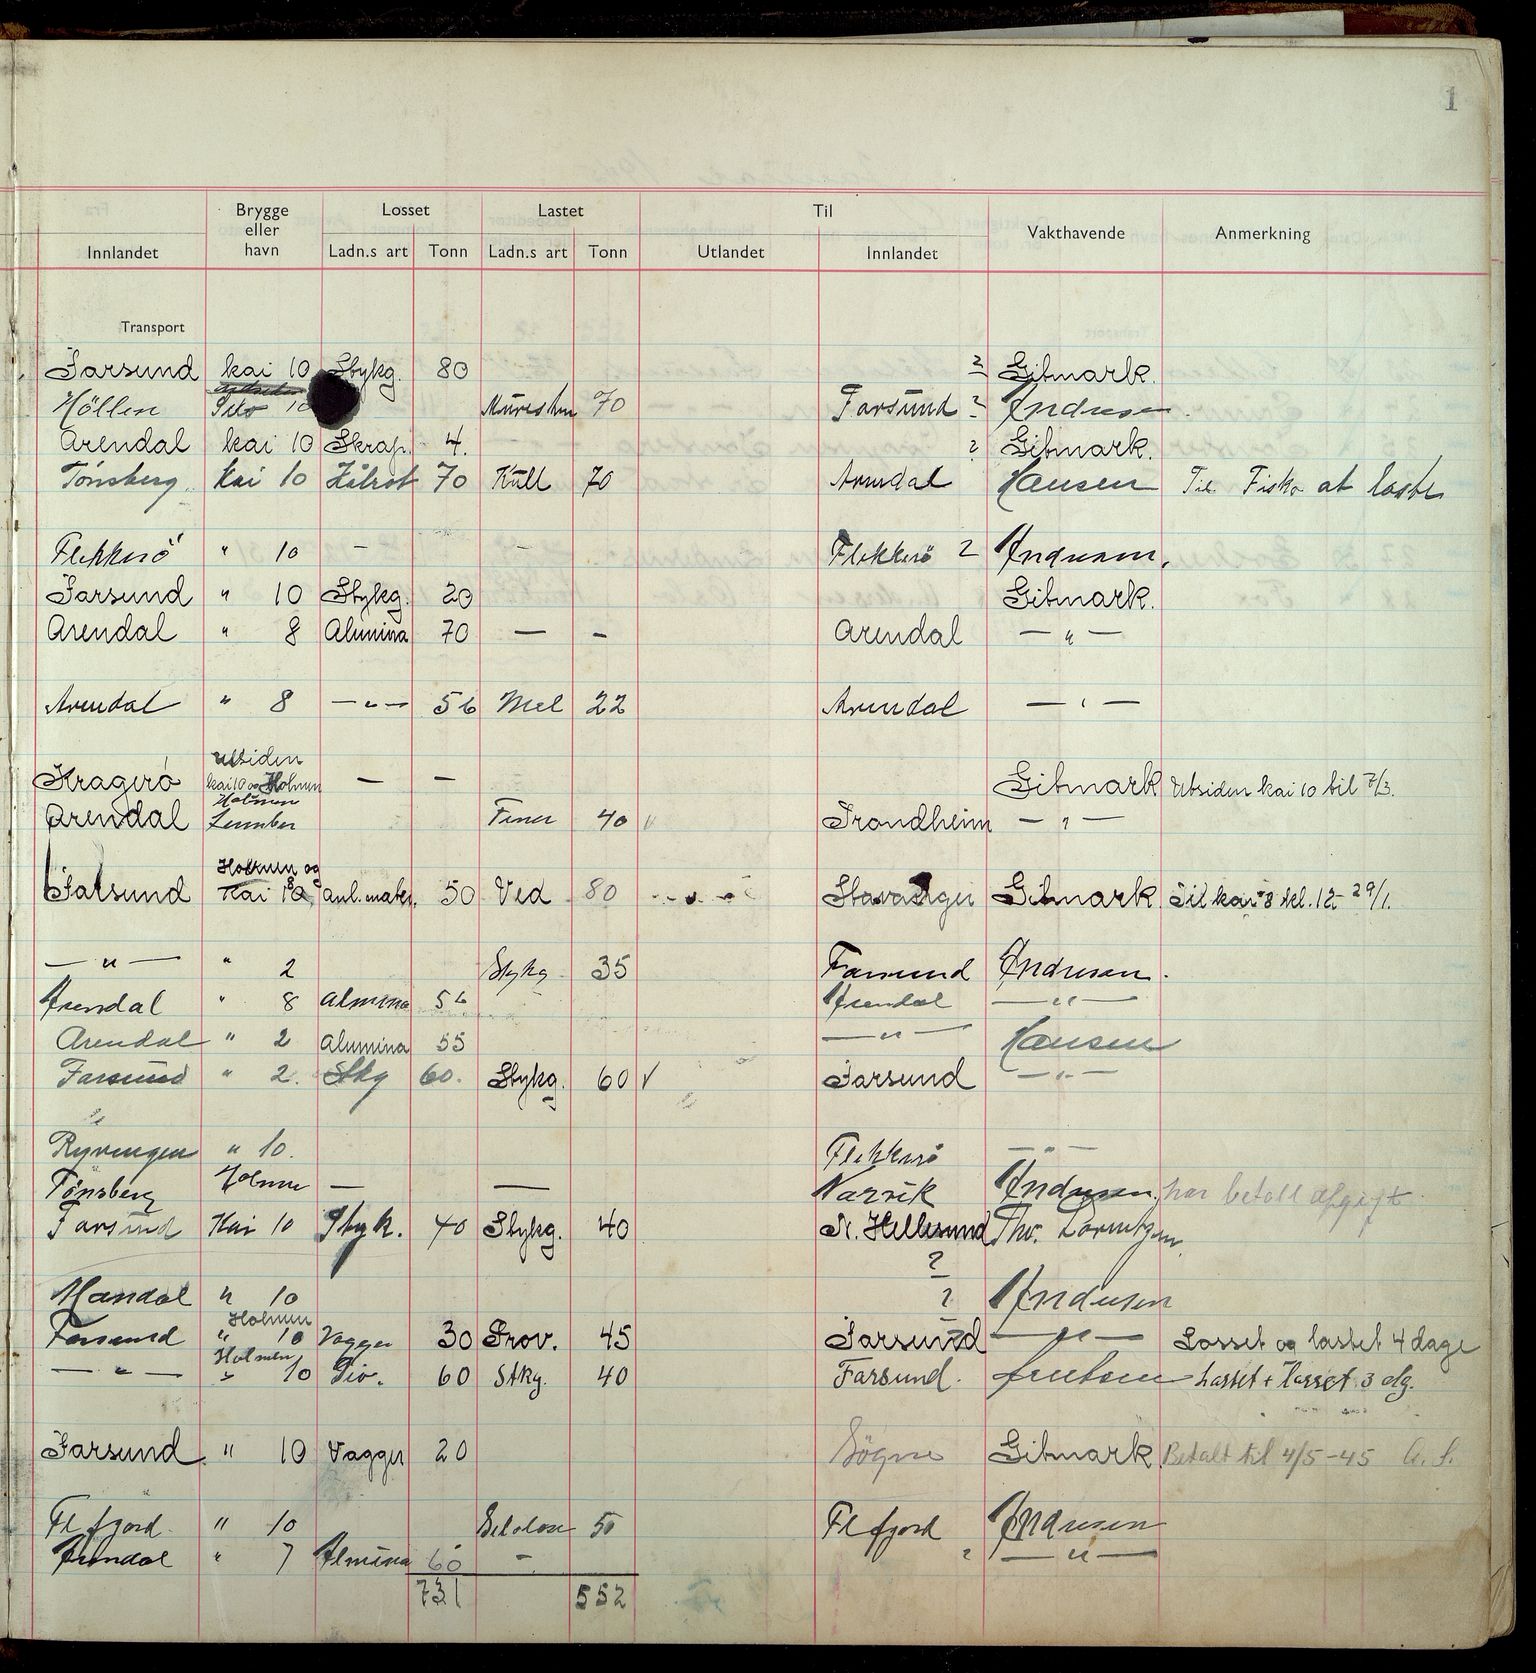 1
Brygge eller havn Losset Lastet Til Vakthavende Anmerkning
Innlandet Ladn.s art Tonn Ladn.s art Tonn Utlandet Innlandet
Transport
Farsund kai 10 Stykg. 80 ? Gitmark.
Höllen Silo 10 70 Farsund ? Andresen.
Arendal kai 10 Skrap. 4. ? Gitmark.
Tönsberg Kai 10 70 Kull 70 Arendal Hansen Til Fisko at laste
Flekkerö " 10 — — Flekkerö ? Andresen.
Farsund " 10 Stykg. 20 Gitmark.
Arendal " 8 Alumina 70 — — Arendal — " —
Arendal " 8 — " — 56 Mel 22 Arendal — " —
Utsiden
Kragerö kai 10 og Holmen — — Gitmark Utsiden kai 10 til 7/3.
Holmen
Arendal Lumber Finer 40 Trondheim — " —
Holmen og
Farsund Kai 10 8 anl. mater. 50 Ved 80 Stavanger Gitmark Til kai 8 kl. 12 29/1.
— " — " 2 Stykg 35 Farsund Andresen.
Arendal " 8 Almina 56 Arendal — " —
Arendal " 2 Alumina 55 — " — Hansen
Farsund " 2. Stkg 60. Stykg. 60 ✓ Farsund — " —
Ryvingen " 10. Flekkerö — " —
Tönsberg Holmen — — Narvik Andresen. har betalt afgift
Farsund Kai 10 Styk. 40 Stykg. 40 N. Hellesund Thv. Lorentzen.
?
Mandal " 10 ? Andresen
Holmen
Farsund " 10 Vagger 30 Prov. 45 Farsund — " — Losset og lastet 4 dage
Holmen
— " — " 10 60 Stkg. 40 Farsund. Losset + lasset 3 dg.
Farsund. " 10 Vagger 20 Sögne Gitmark. Betalt til 4/5-45
Fl fjord " 10 50 Fl fjord Andresen
Arendal " 7 Almina 60 — ? — " —
731 552